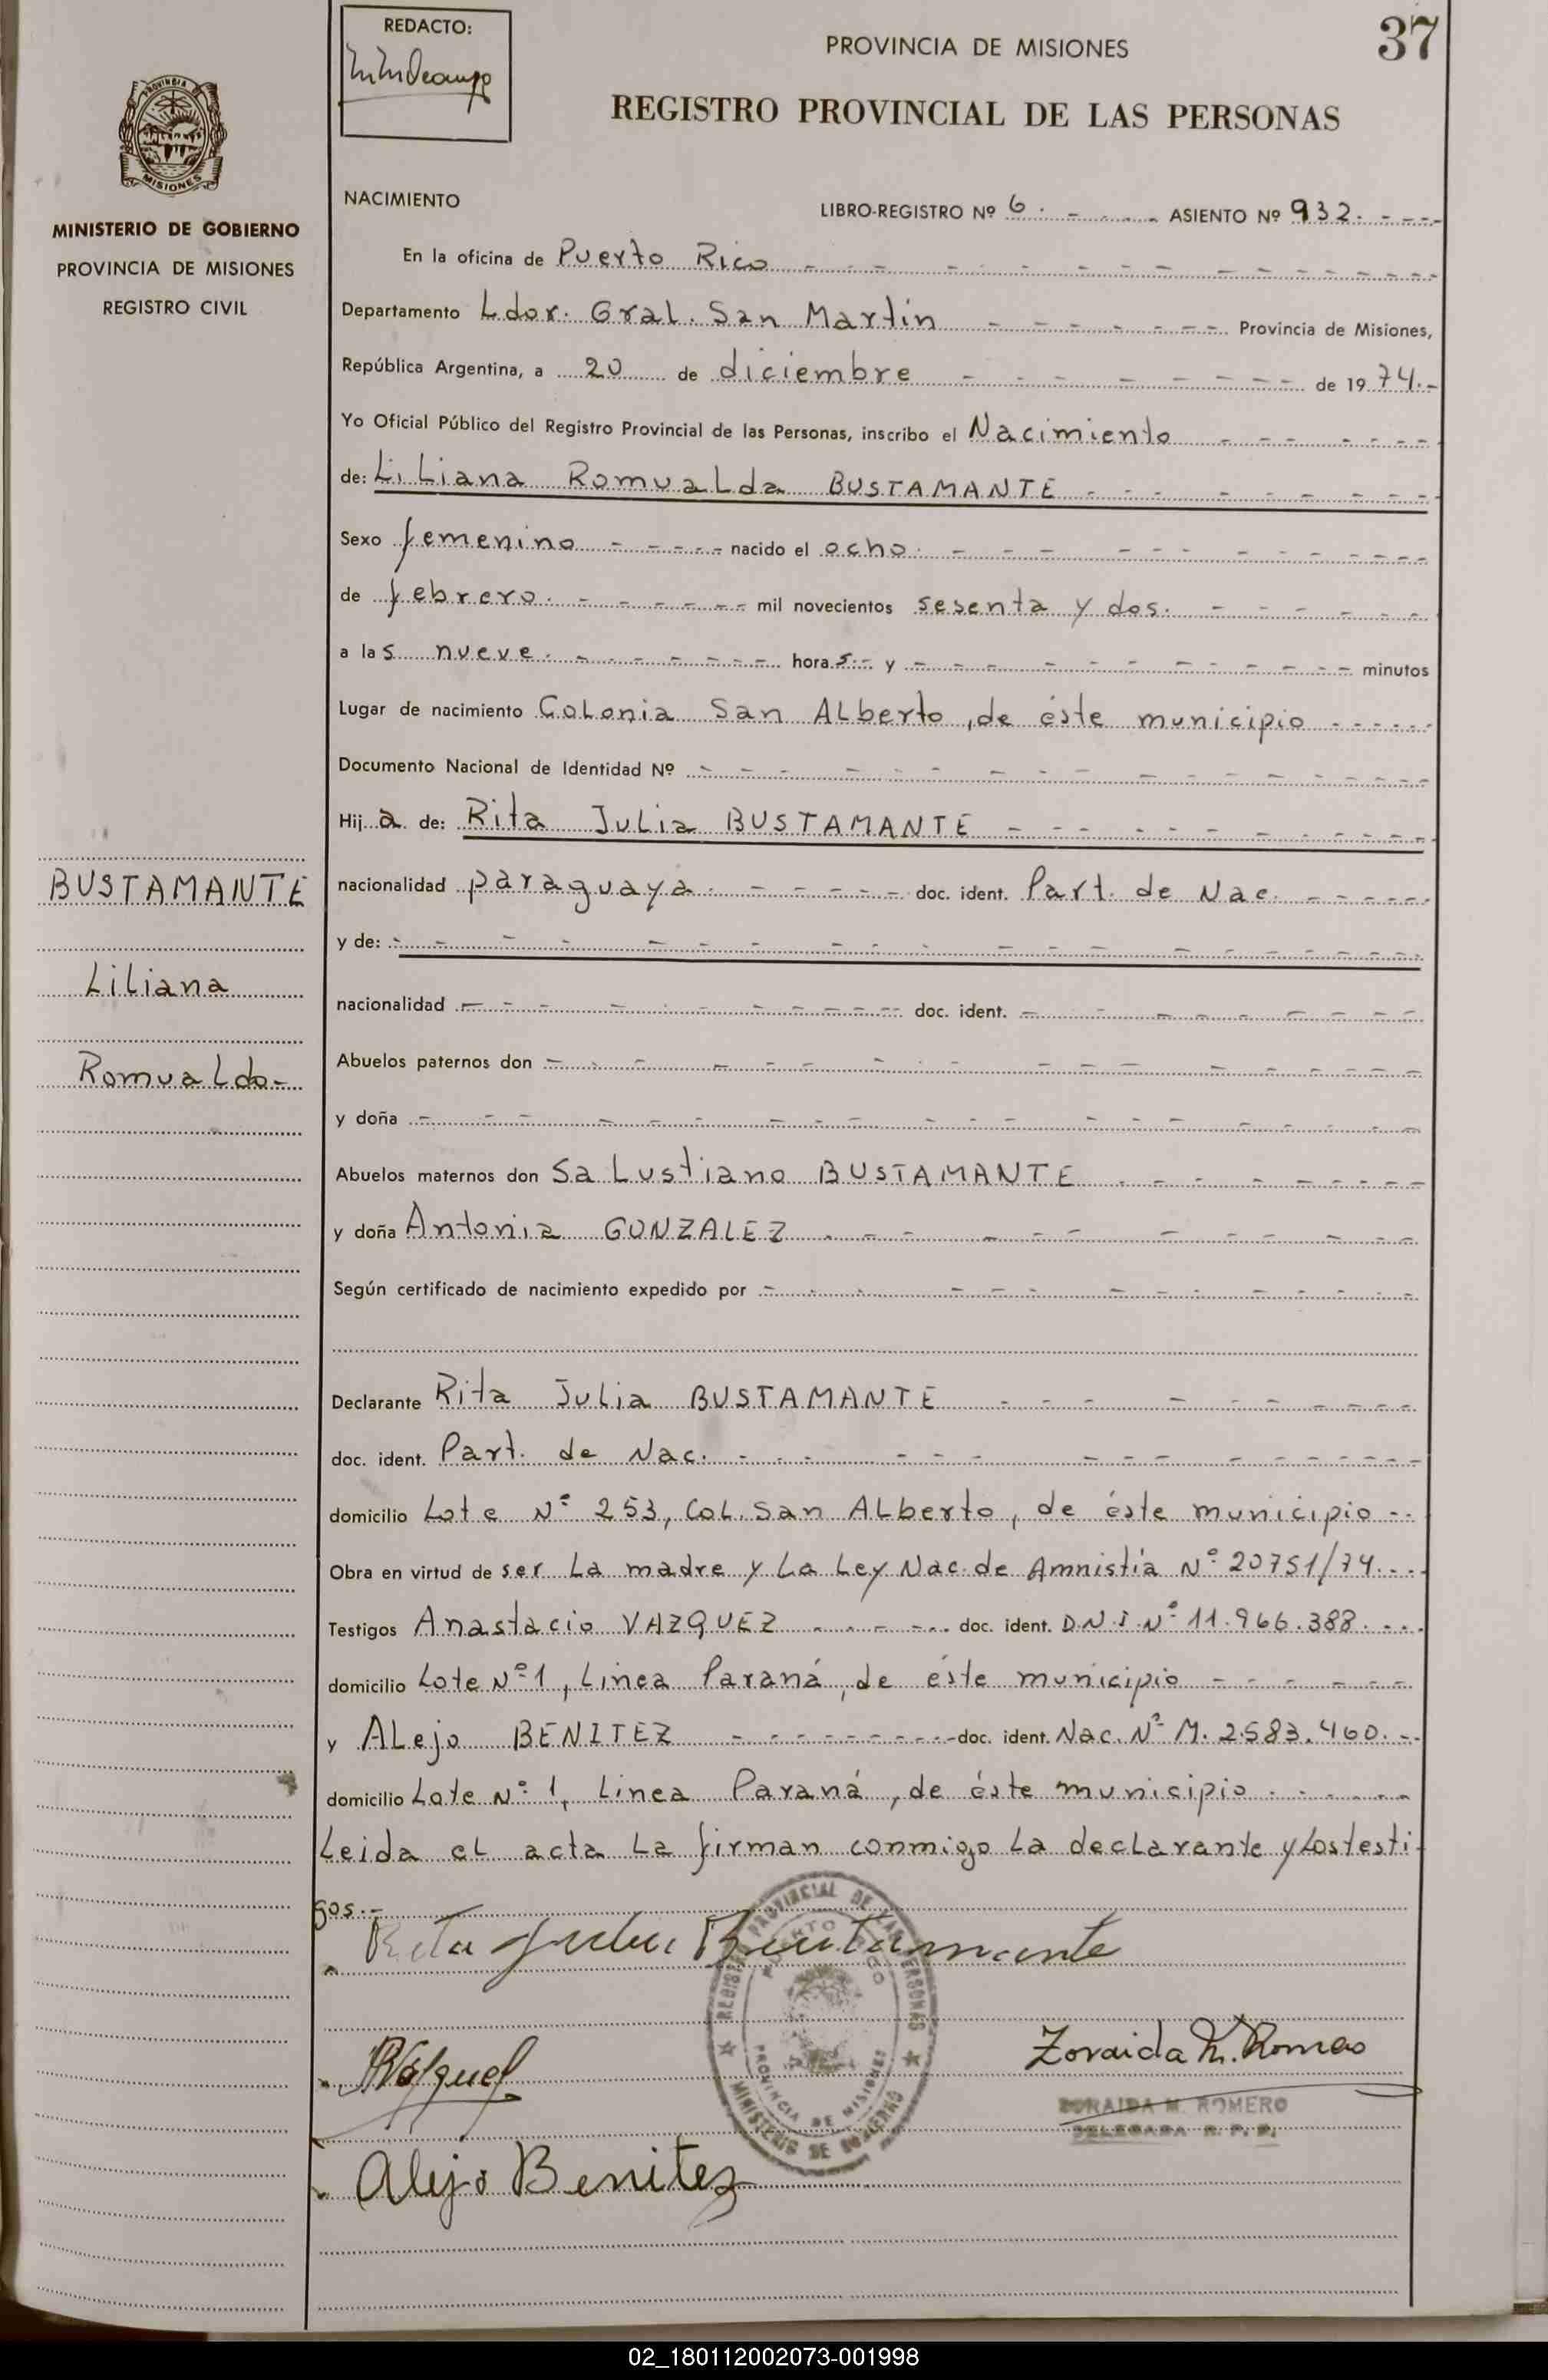 REDACTO:
PROVINCIA DE MISIONES
37
REGISTRO PROVINCIAL DE LAS PERSONAS
MISIONES
MINISTERIO DE GOBIERNO
PROVINCIA DE MISIONES
REGISTRO CIVIL
NACIMIENTO
LIBRO-REGISTRO Nº 6.- ASIENTO Nº 932.-
En la oficina de Puerto Rico
Departamento Ldor. Gral. San Martín Provincia de Misiones,
República Argentina, a 20 de diciembre de 19 74.-
Yo Oficial Público del Registro Provincial de las Personas, inscribo el Nacimiento
de: Liliana Romualda BUSTAMANTE
Sexo femenino nacido el ocho.
de febrero. mil novecientos sesenta y dos.
a las nueve. horas.- y minutos
Lugar de nacimiento Colonia San Alberto, de éste municipio
Documento Nacional de Identidad Nº
Hija de: Rita Julia BUSTAMANTE
nacionalidad paraguaya. doc. ident. Part. de Nac.
y de:
nacionalidad doc. ident.
Abuelos paternos don
y doña
Abuelos maternos don Salustiano BUSTAMANTE
y doña Antonia GONZALEZ
Según certificado de nacimiento expedido por
Declarante Rita Julia BUSTAMANTE
doc. ident. Part. de Nac.
domicilio Lote Nº 253, Col. San Alberto, de éste municipio
Obra en virtud de ser la madre y la Ley Nac. de Amnistía Nº 20751/74.
Testigos Anastacio VAZQUEZ doc. ident. D.N.I. Nº 11.966.388.
domicilio Lote Nº 1, Línea Paraná, de éste municipio
y Alejo BENITEZ doc. ident. Nac. Nº M. 2.583.460.
domicilio Lote Nº 1, Línea Paraná, de éste municipio
Leida el acta la firman conmigo la declarante y los testi
gos.-
BUSTAMANTE
Liliana
Romualdo-
Rita Julia Bustamante
REGISTRO PROVINCIAL DE LAS PERSONAS
PUERTO RICO
PROVINCIA DE MISIONES
MINISTERIO DE GOBIERNO
Zoraida M. Romero
ZORAIDA M. ROMERO
DELEGADA R. P. P.
Alejo Benitez
02_180112002073-001998